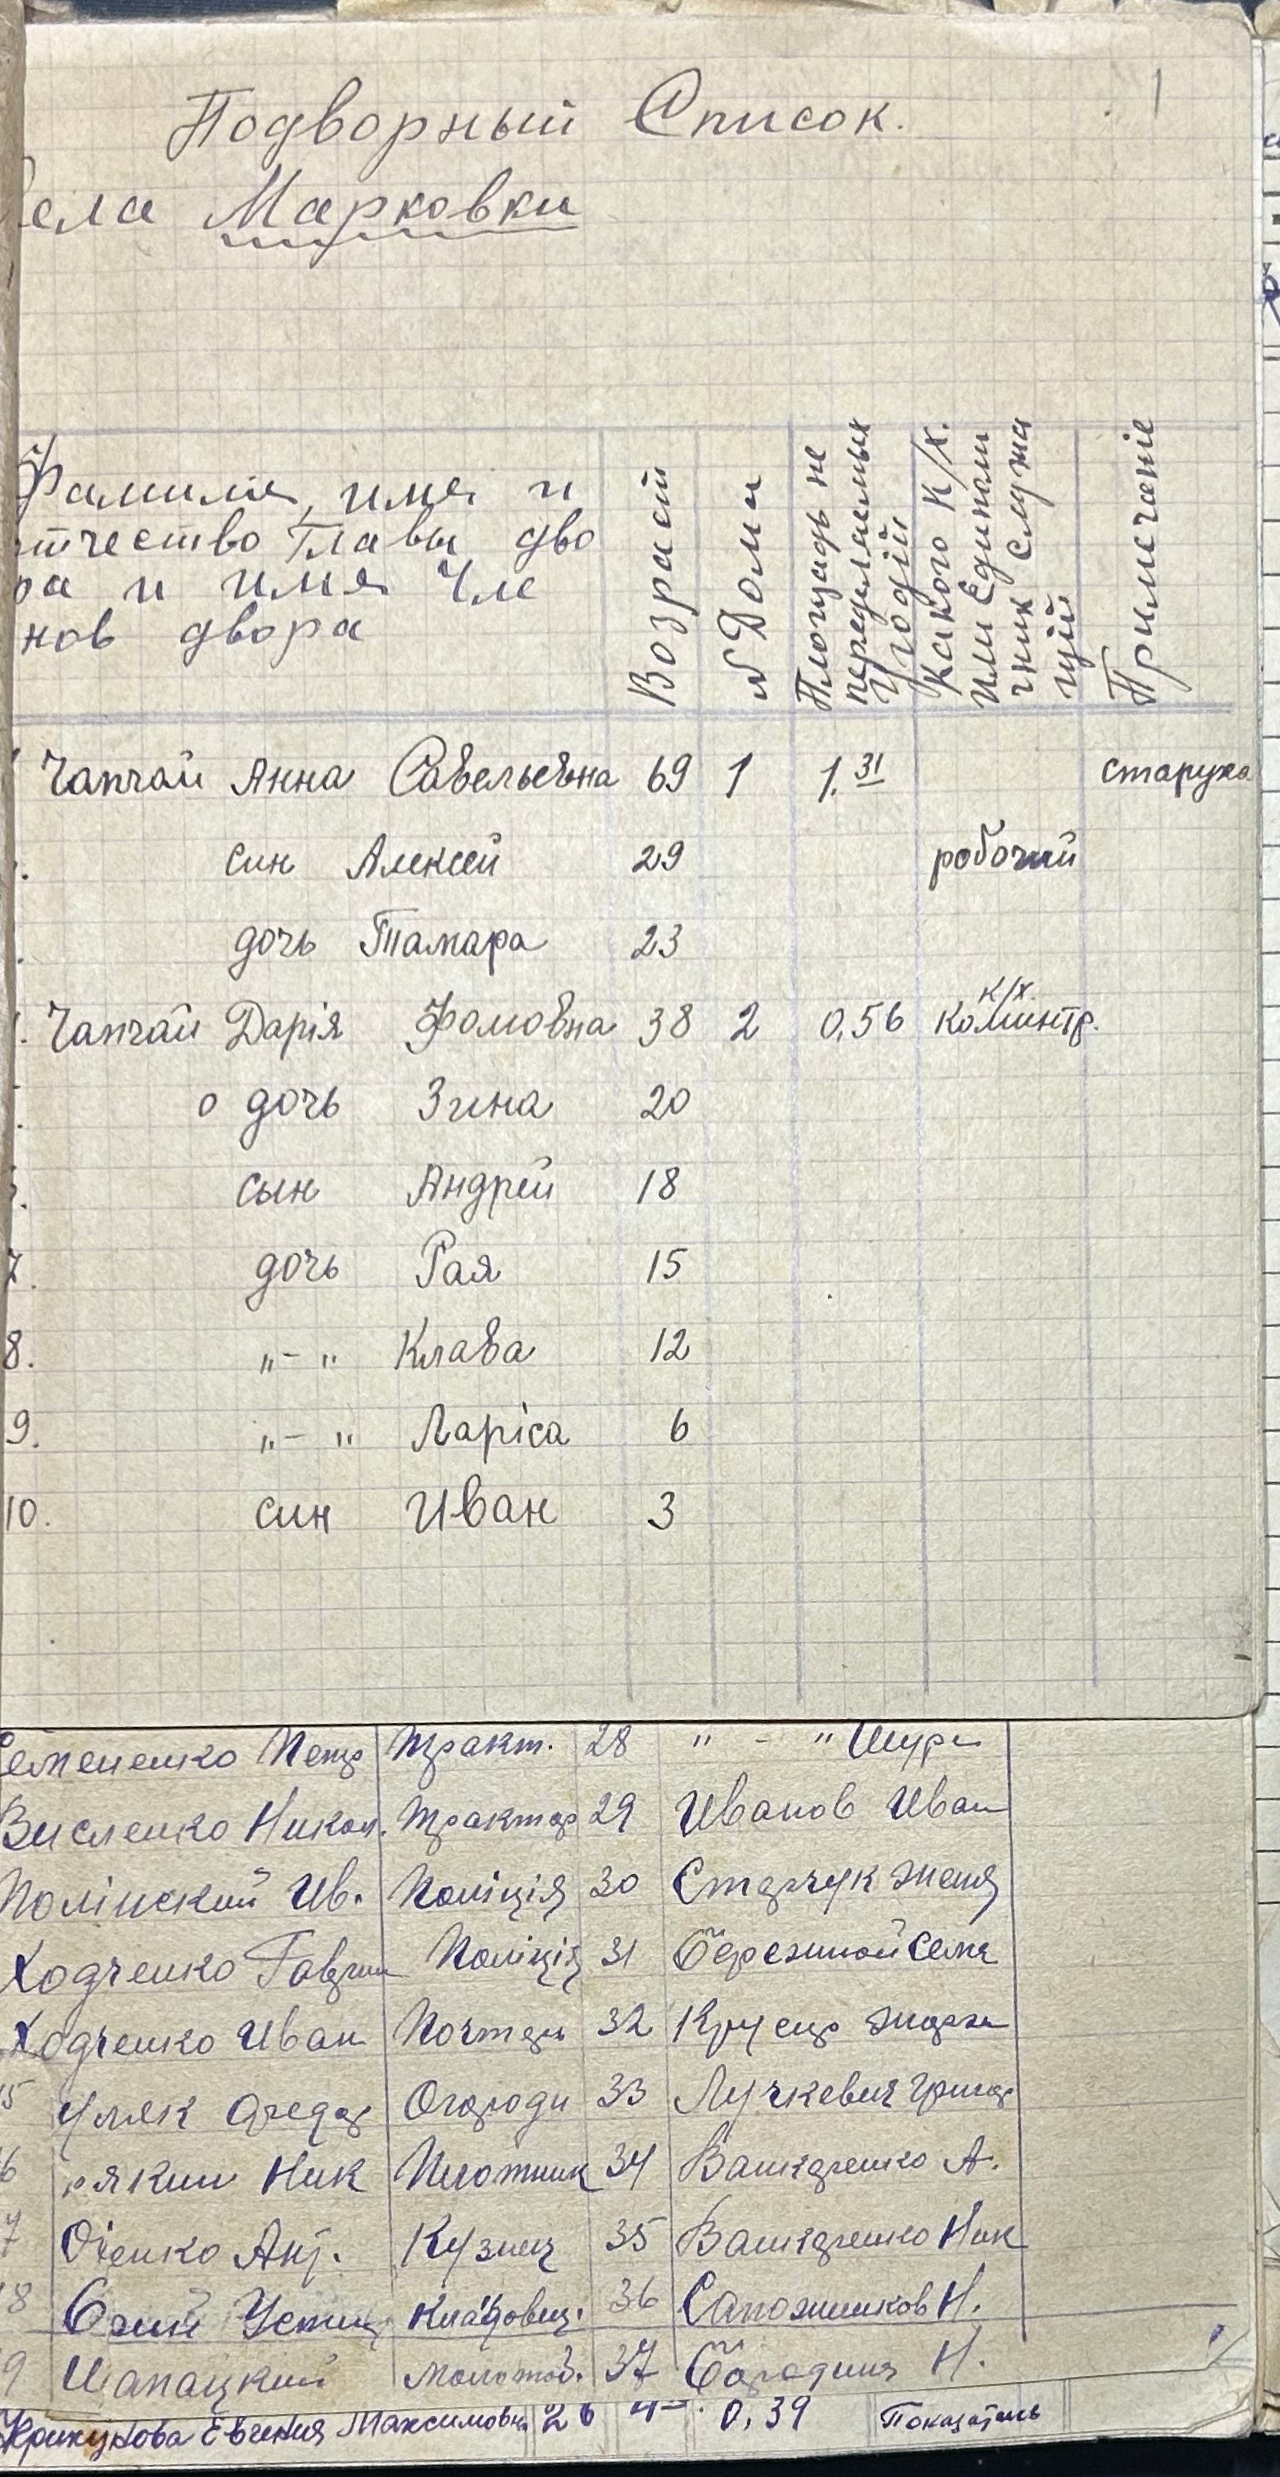 Подворный Список.
1
ела Марковки
Фамилия, имя и
тчество Главы дво
ра и имя Чле
нов двора
Возраст
№ Дома
Площадь не
переделяемых
Угодий
Какого К/х.
или Единоли
чник Служа
щій
Примечаніе
Чапчай Анна Савельевна 69 1 1.31 старуха
син Алексей 29 робочий
дочь Тамара 23
Чапчай Дарія Фомовна 38 2 0,56 к/х. Коминтр.
о дочь Зина 20
сын Андрей 18
7. дочь Рая 15
8. "-" Клава 12
9. "-" Ларіса 6
10. син Иван 3
Семененко Петр Тракт. 28 " - " Шура
Висленко Никол. Трактор 29 Иванов Иван
Полінский Ив. Поліція 30 Старчук Женя
Ходченко Гаврил Поліція 31 Бережной Сема
Ходченко Иван Почтар 32
5 Огароди 33 Лучкевич Григор
6 Ник Плотник 34 Вашкаренко А.
7 Ант. Кузнец 35 Вашкаренко Ник
8 Кладовщ. 36 Сапожников Н.
9 Шапацкий Молотоб. 37 Бородина Н.
Крикунова Евгения Максимовн 26 0,39 Показатель